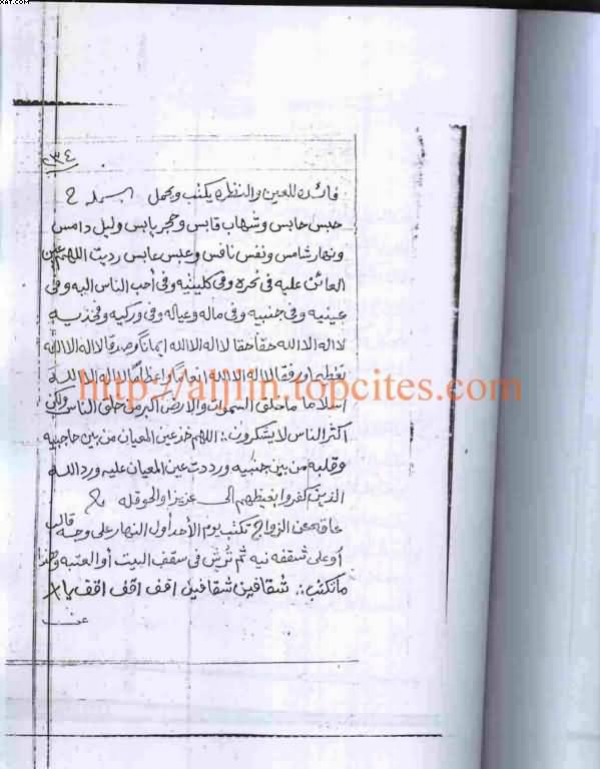 ٢٣٤
فائدة للعين والنظره يكتب ويحمل بسملة
حبس حابس وشهاب قابس وحجر يابس وليل دامس
ونهار شامس ونفس نافس وعبس عابس رديت اللهم عين
العائن عليه في نحره وفي كليتيه وفي أحب الناس اليه وفي
عينيه وفي جنبيه وفي ماله وعياله وفي وركيه وفخذيه
لا اله الا الله حقا حقا لا اله الا الله ايمانا وصدقا لا اله الا الله
لا اله الا الله لا اله الا الله
http://aljiin.topcites.com
ما خلق السموات والارض خلق الناس ولكن
اكثر الناس لا يشكرون اللهم خذ عين المعيان من بين حاجبيه
وقلبه من بين جنبيه ورددت عين المعيان عليه ورد الله
الذين كفروا بغيظهم الى عزيزا والحوقله
عاقه عن الزواج تكتب يوم الأحد أول النهار على وجه قالب
أو على شقفه نيه ثم ترش في سقف البيت أو العتبه وهذا
ما تكتب شقافين شقافيل اقف اقف اقف يا
عن